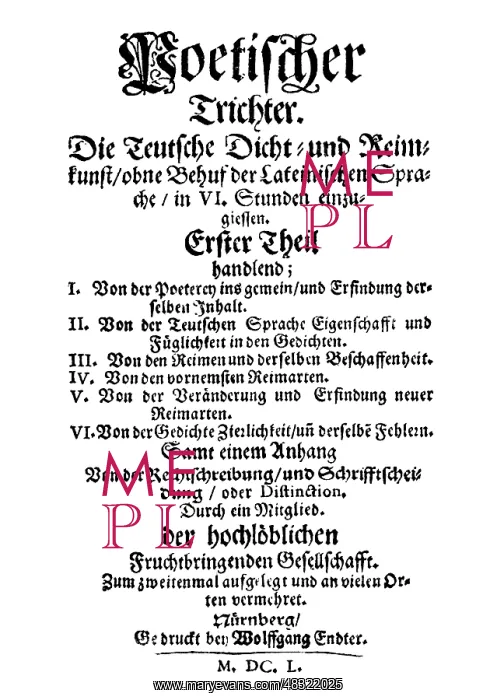 Poetischer
Trichter.
Die Teutsche Dicht- und Reim-
kunst/ohne Behuf der Lateinischen Spra-
che / in VI. Stunden einzu-
giessen.
Erster Theil
handlend;
I. Von der Poeterey ins gemein/und Erfindung der-
selben Inhalt.
II. Von der Teutschen Sprache Eigenschafft und
Füglichkeit in den Gedichten.
III. Von den Reimen und derselben Beschaffenheit.
IV. Von den vornemsten Reimarten.
V. Von der Veränderung und Erfindung neuer
Reimarten.
VI. Von der Gedichte Zierlichkeit/uñ derselbẽ Fehlern.
Samt einem Anhang
Von der Rechtschreibung/und Schrifftschei-
dung / oder Distinction.
Durch ein Mitglied.
der hochlöblichen
Fruchtbringenden Gesellschafft.
Zum zweitenmal aufgelegt und an vielen Or-
ten vermehret.
Nürnberg/
Gedruckt bey Wolffgang Endter.
M. DC. L.
ME
PL
ME
PL
www.maryevans.com/48922025